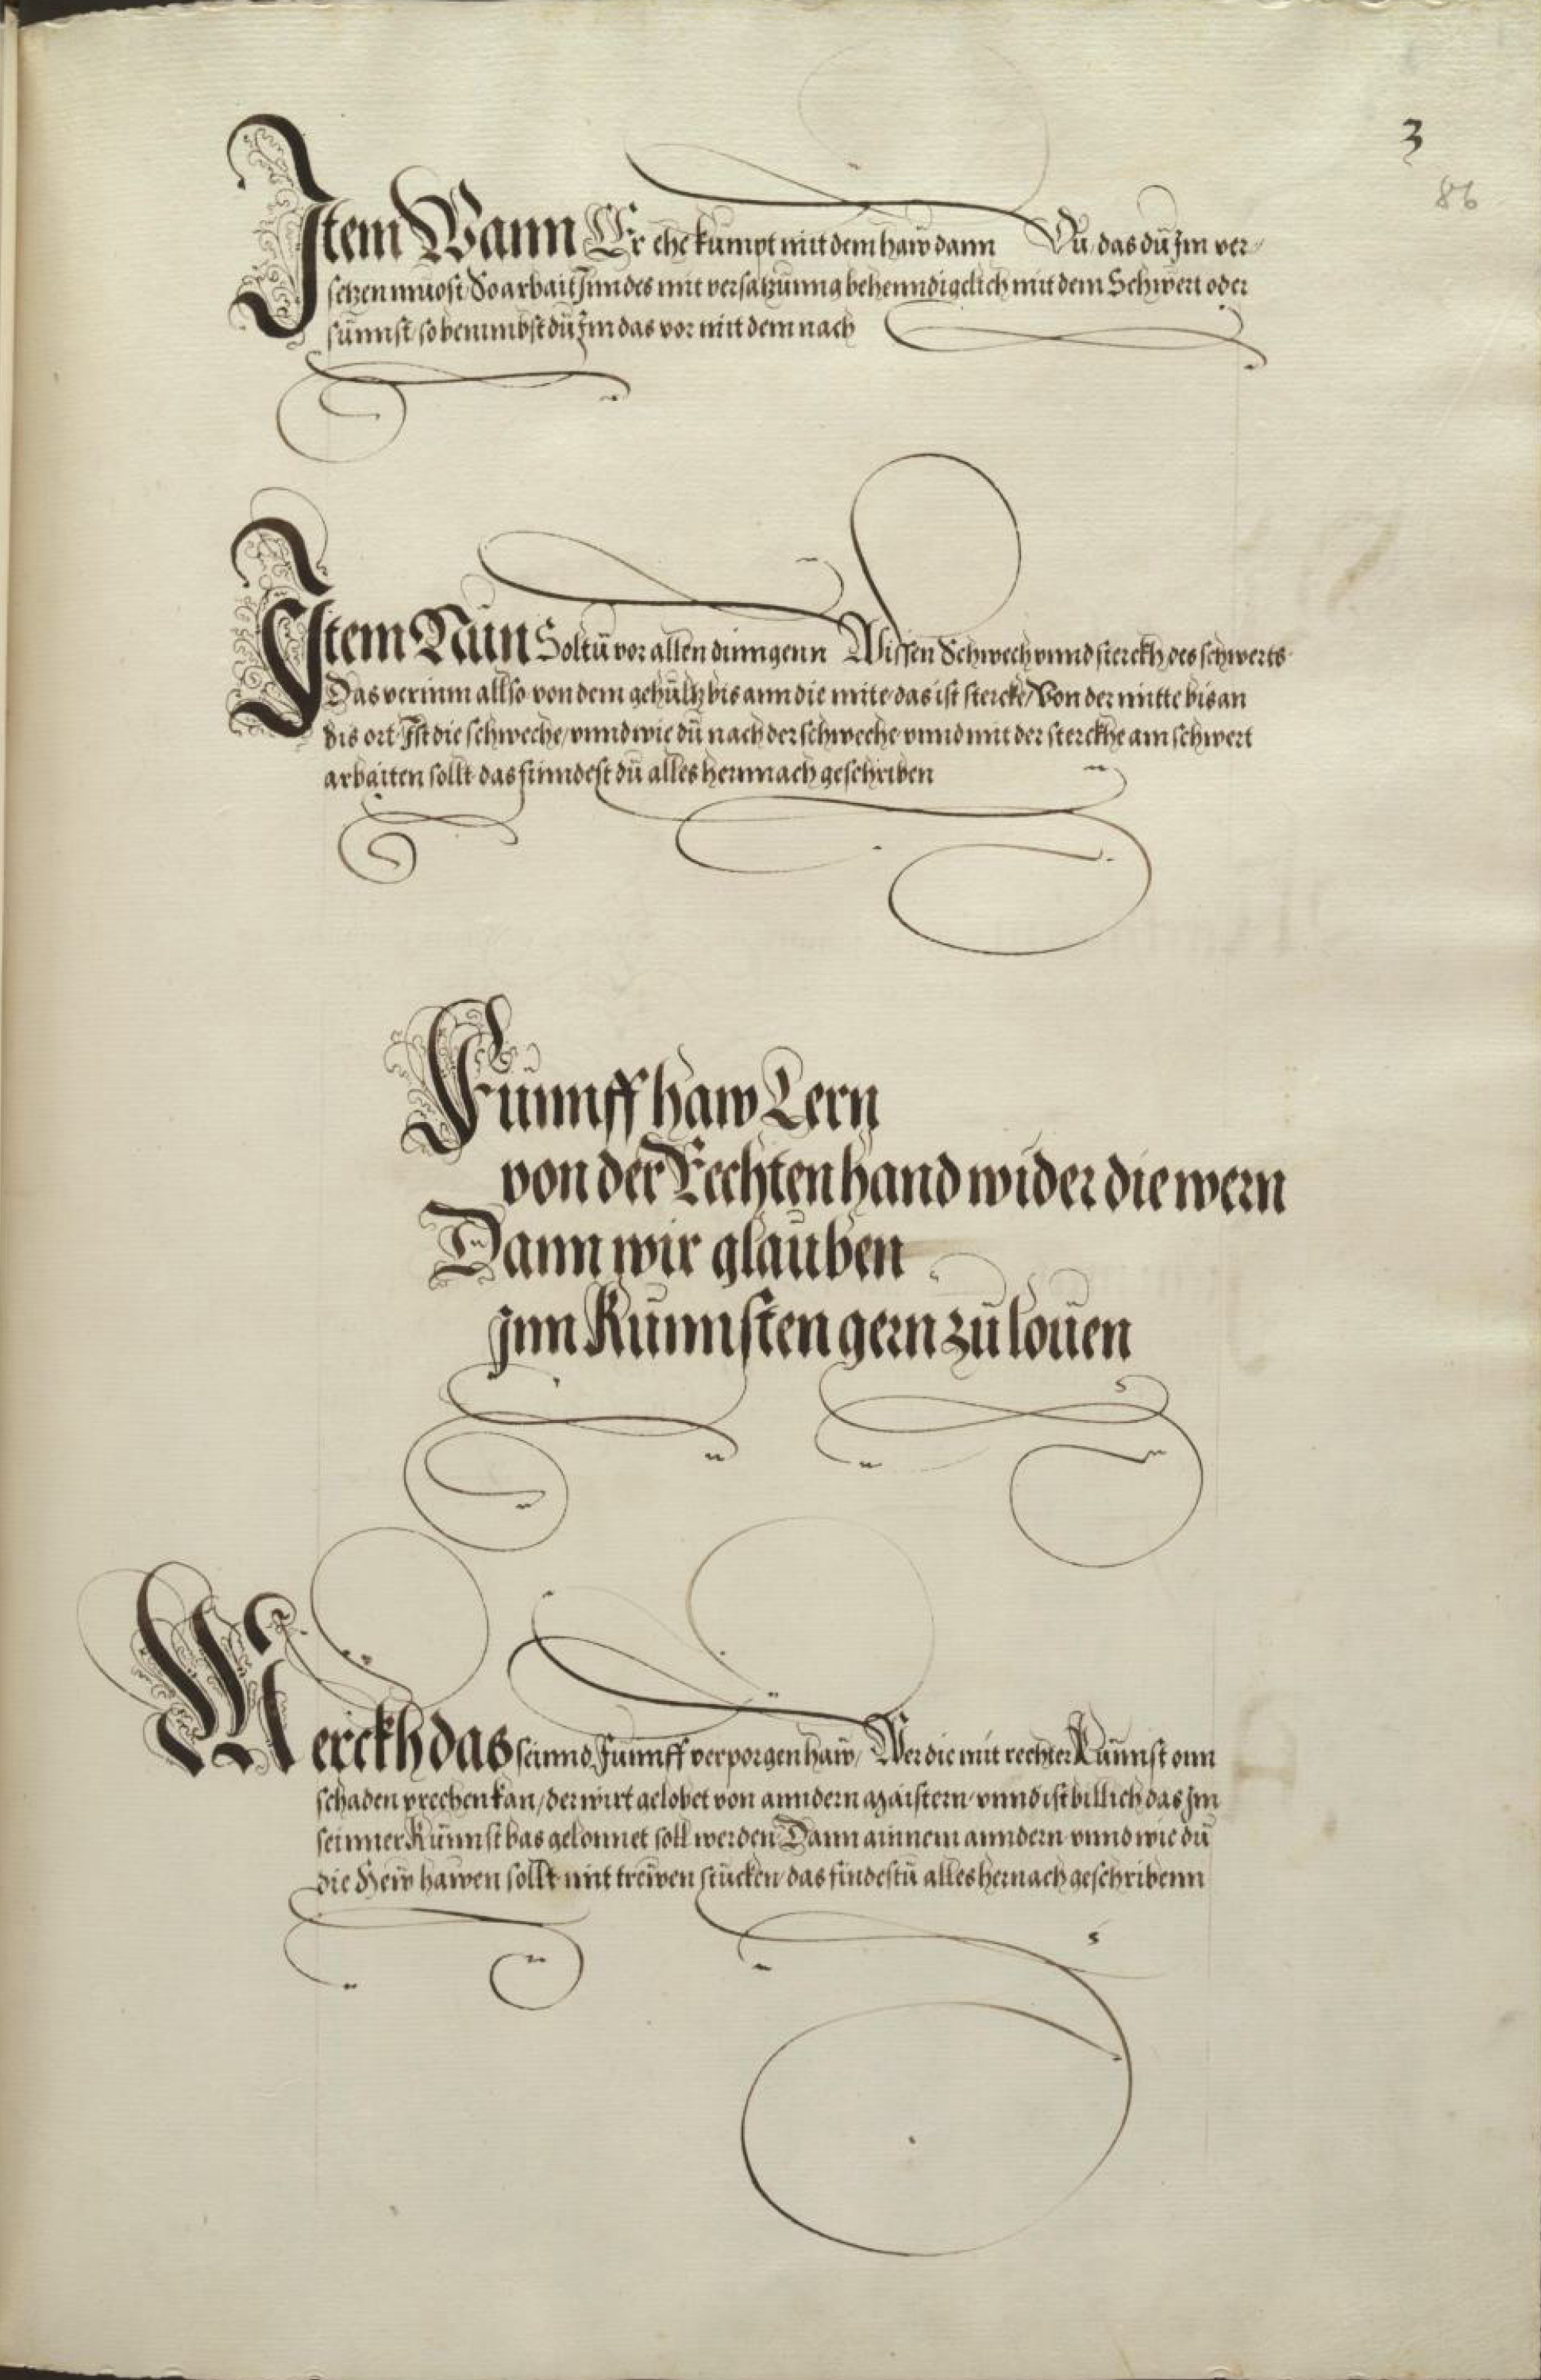 3
86
Item Wann Er ehe kumpt mit dem haw dann Du, das dū Im ver-
setzen muost So arbait Inndes mit versatzūnng behenndigclich mit dem Schwert oder
sūnnst, so benimbst dū Im das vor mit dem nach
Item Nūn Soltū vor allen dinngenn Wissen Schwech unnd sterckh des schwerts
Das vernim allso von dem gehūltz bis ann die mite, das ist stercke, Von der mitte bis an
dis ort Ist die schweche, unnd wie dū nach der schweche unnd mit der sterckhe am schwert
arbaiten sollt das finndest dū alles hernnach geschriben
Fūnnff haw Lern
von der Rechten hand wider die wern
Dann wir glaūben
Inn Kūnnsten gern zū loūen
Merckh das seinnd Fūnnff verporgen haw, Wer die mit rechter Kūnnst onn
schaden prechen kan, der wirt gelobet von anndern Maistern, unnd ist billich das Im
seinner Kūnnst bas gelonnet soll werden Dann ainnem anndern unnd wie dū
die Hew hawen sollt mit trewen stūcken, das findestū alles hernach geschribenn